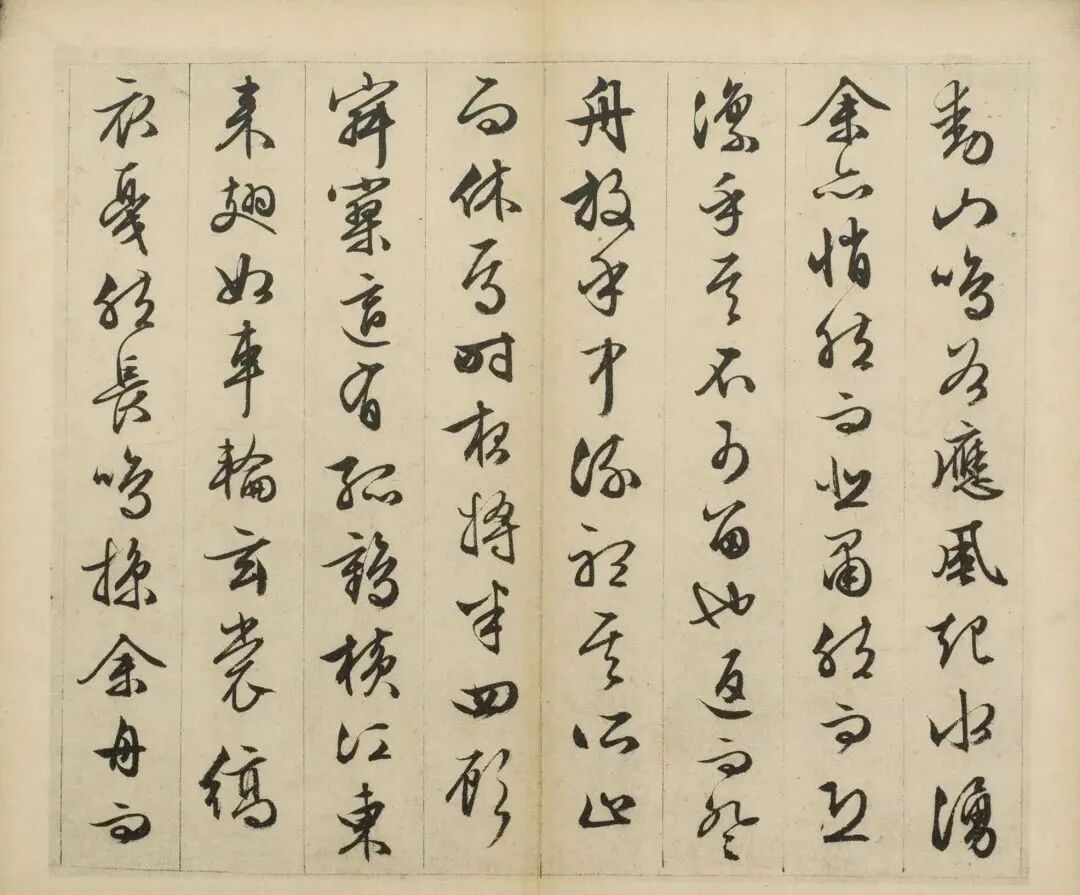 動山鳴谷應風起水湧
余亦悄然而悲肅然而恐
凜乎其不可留也返而登
舟放乎中流聽其所止
而休焉時夜將半四顧
寂寥適有孤鶴橫江東
來翅如車輪玄裳縞
衣戛然長鳴掠余舟而